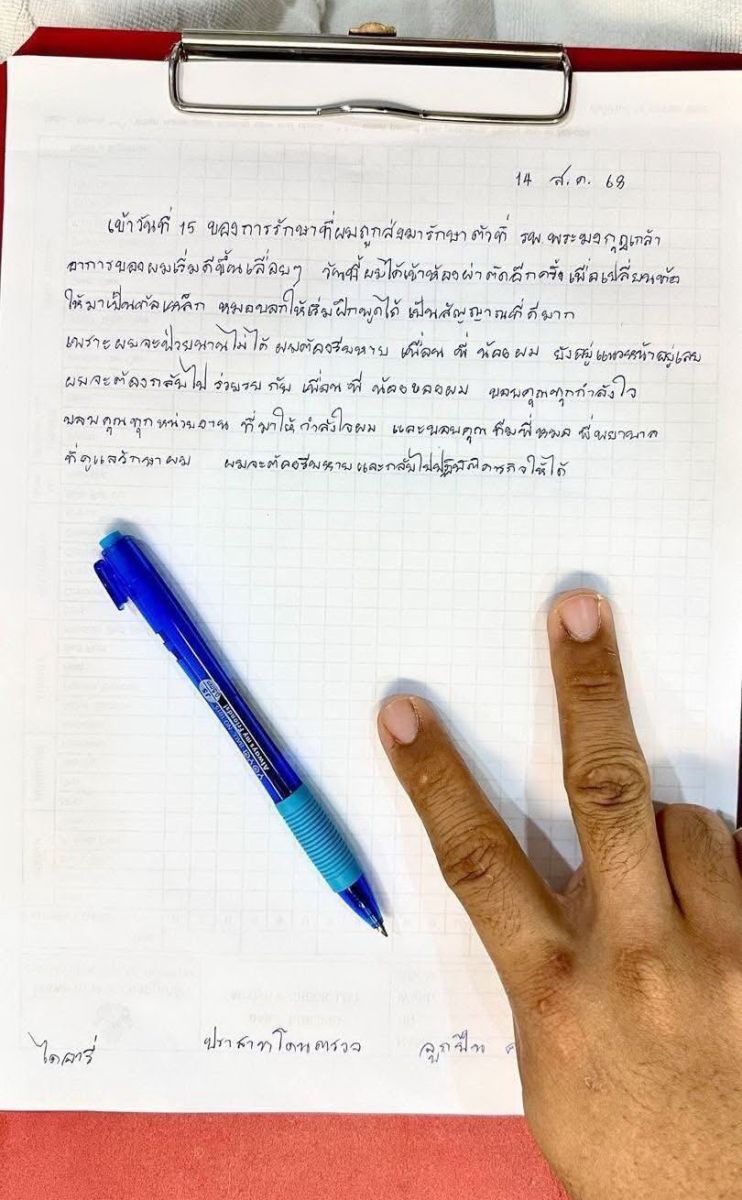 14 ส.ค. 68
เข้าวันที่ 15 ของการรักษาที่ผมถูกส่งมารักษาตัวที่ รพ.พระมงกุฎเกล้า
อาการของผมเริ่มดีขึ้นเรื่อยๆ วันนี้ผมได้เข้าห้องผ่าตัดอีกครั้ง เพื่อเปลี่ยนท่อ
ให้มาเป็นท่อเหล็ก หมอบอกให้เริ่มฝึกพูดได้ เป็นสัญญาณที่ดีมาก
เพราะผมจะป่วยนานไม่ได้ ผมต้องรีบหาย เพื่อน พี่ น้องผม ยังอยู่แนวหน้าอยู่เลย
ผมจะต้องกลับไป ร่วมรบกับ เพื่อน พี่ น้องของผม ขอบคุณทุกกำลังใจ
ขอบคุณทุกหน่วยงาน ที่มาให้กำลังใจผม และขอบคุณทีมพี่หมอ พี่พยาบาล
ที่ดูแลรักษาผม ผมจะต้องรีบหายและกลับไปปฏิบัติภารกิจให้ได้
Always my friend!
ไดอารี่ ปราสาทโดนตรวล ลูกปืน